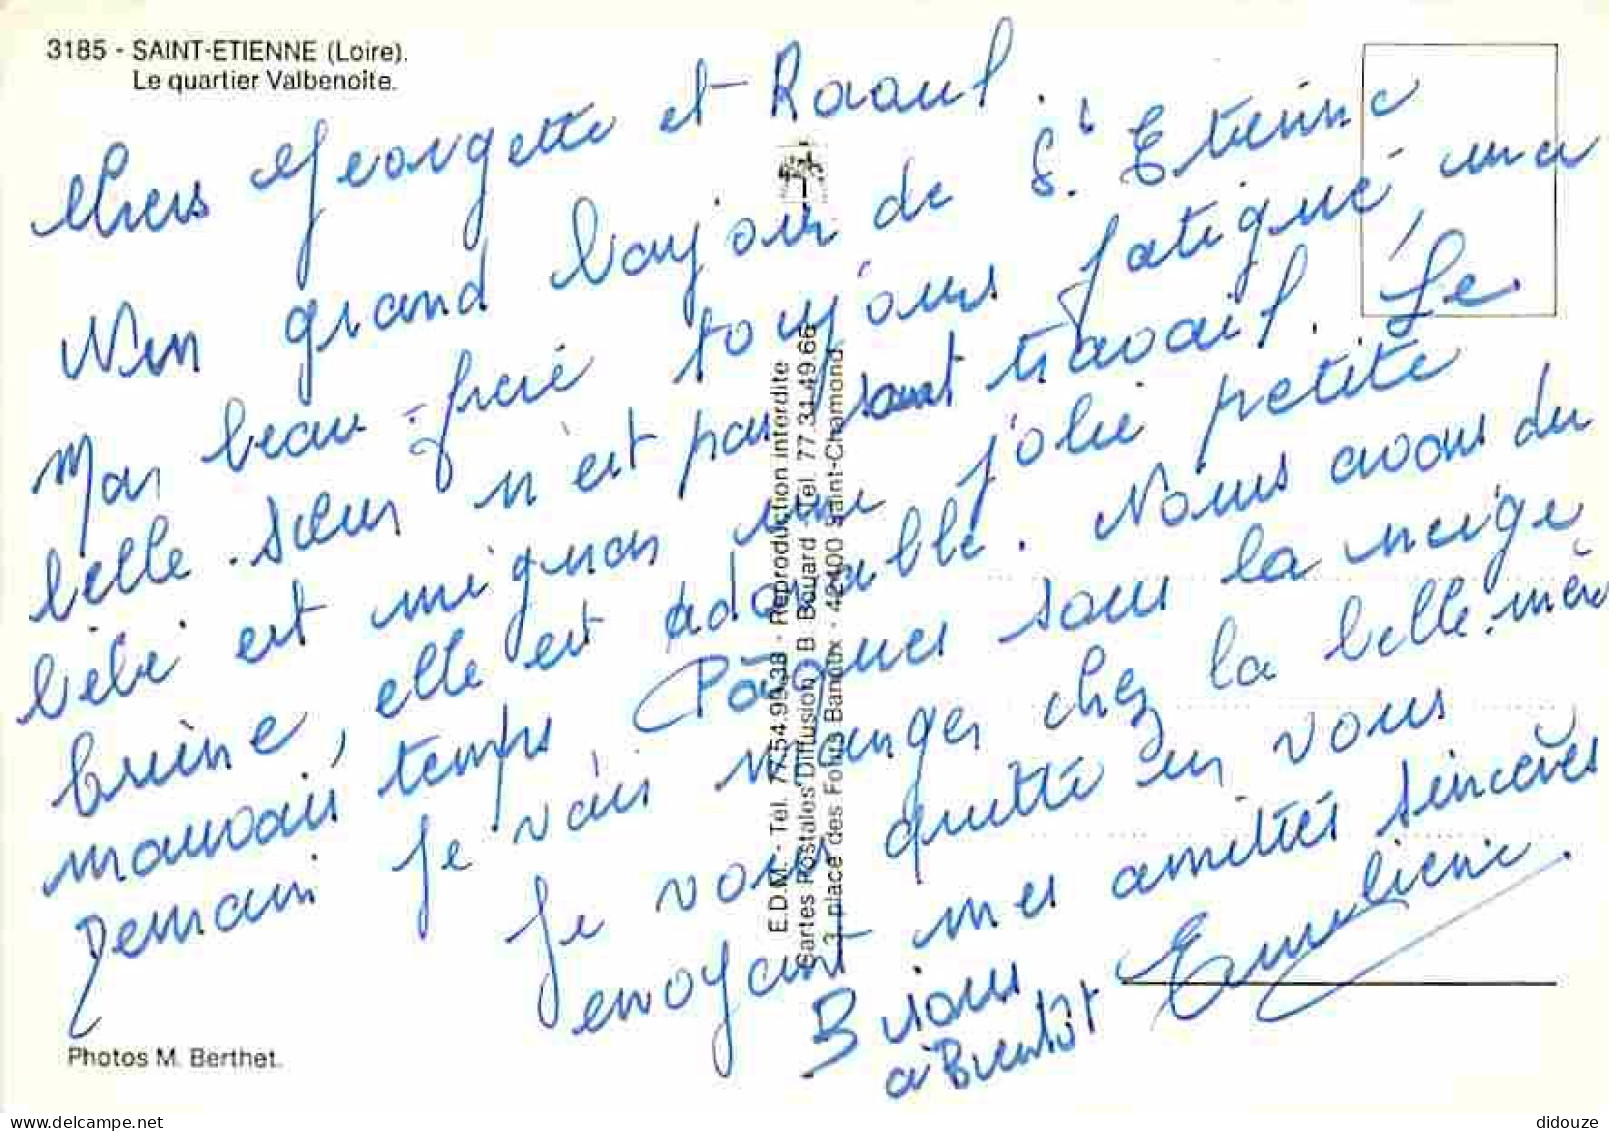 3185 - SAINT-ETIENNE (Loire).
Le quartier Valbenoite.
Chers Georgette et Raoul.
Un grand bonjour de St. Etienne
Mon beau-frère toujours fatigué ma
belle-sœur n'est pas sans travail. Le
bébé est mignon une jolie petite
brune, elle est adorable. Nous avons du
mauvais temps Pâques sous la neige
Demain je vais manger chez la belle-mère
Je vous quitte en vous
envoyant mes amitiés sincères
Bisous Emilienne.
à Bientôt
E.D.M. - Tél. 77.54.99.38 - Reproduction interdite
Cartes Postales Diffusion B Bouard Tél. 77.31.49.66
3, place des Folus Banoux - 42400 Saint-Chamond
Photos M. Berthet.
didouze